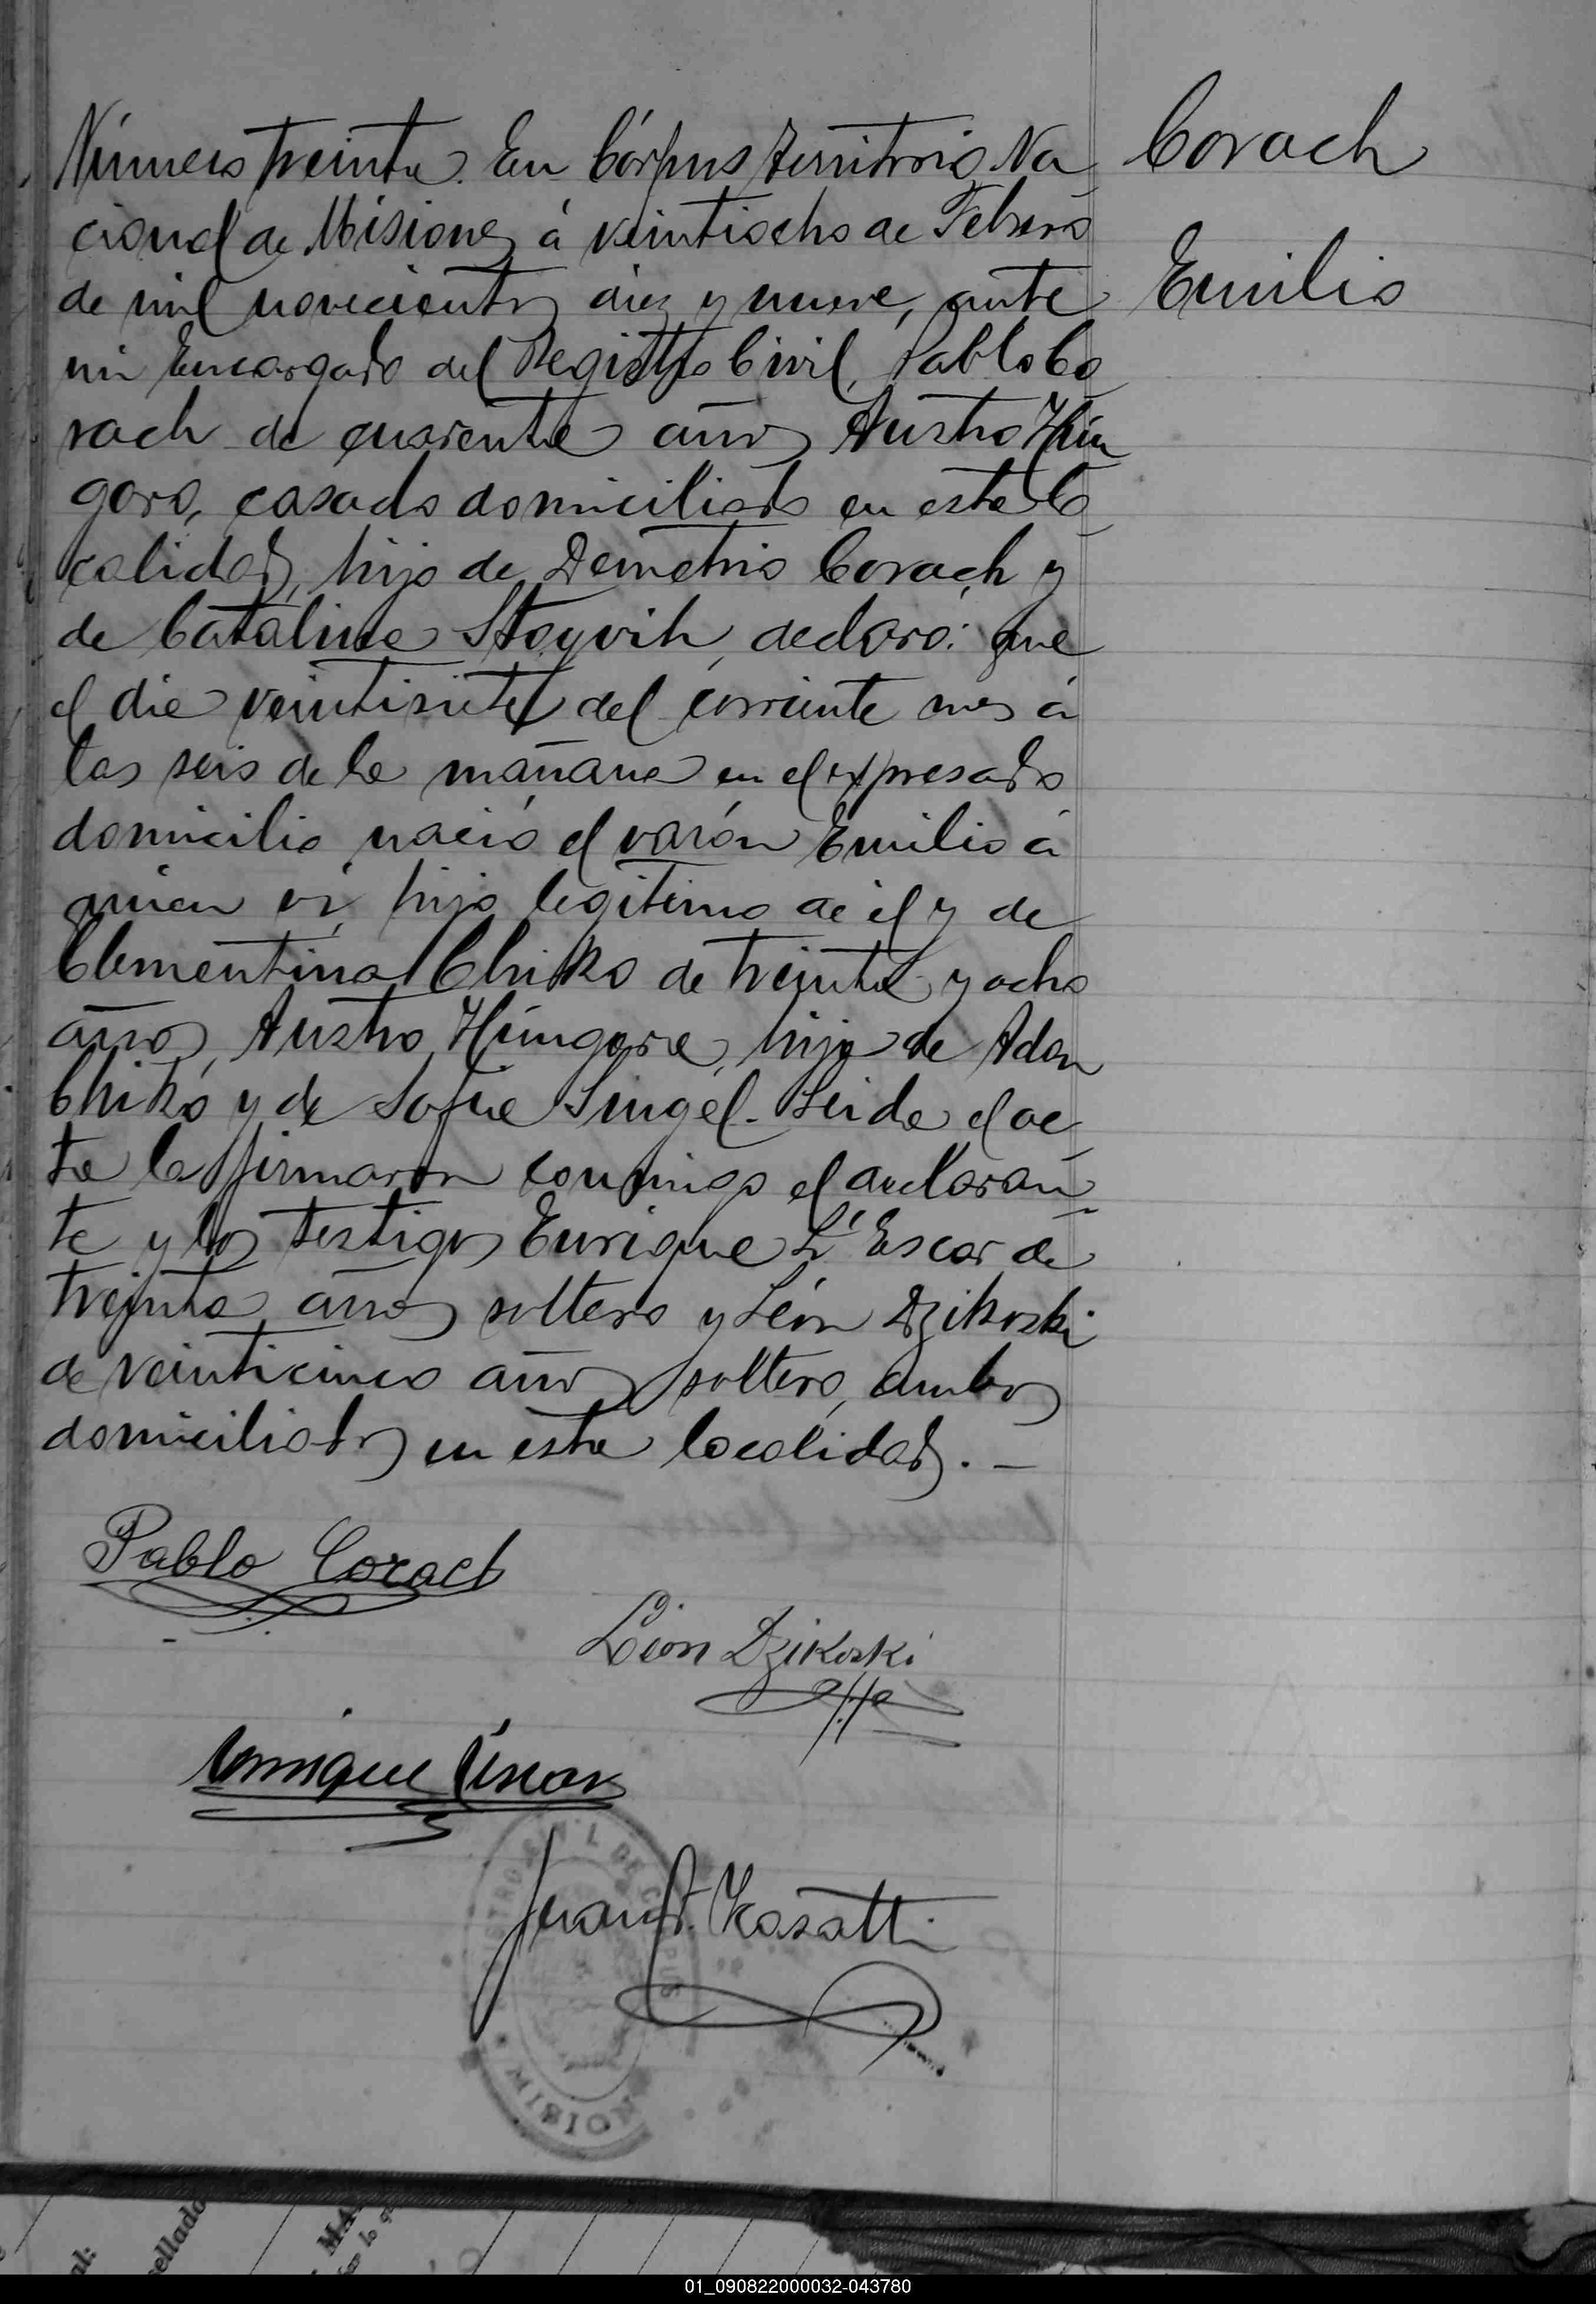 Número treinta. En Córpus Territorio Na
cional de Misiones á veintiocho de Febrero
de mil novecientos diez y nueve, ante
mi Encargado del Registro Civil, Pablo Co
rach de cuarenta años Austro Hún
garo, casado domiciliado en esta lo
calidad, hijo de Demetrio Corach y
de Catalina Stoyvih, declaró: que
el dia veintisiete del corriente mes á
las seis de la mañana en el expresado
domicilio nació el varón Emilio á
quien vi, hijo legitimo de él y de
Clementina Chiko de treinta y ocho
años, Austro Húngara, hija de Adan
Chikó y de Sofia Singel. Leida el ac
ta la firmaron conmigo el declaran
te y los testigos Enrique L'Escar de
treinta años soltero y León Dzikoski
de veinticinco años soltero, ambos
domiciliados en esta localidad. —
Corach
Emilio
Pablo Corach
León Dzikoski
Enrique
Juan Kasatti
MISIONES
cellado
01_090822000032-043780